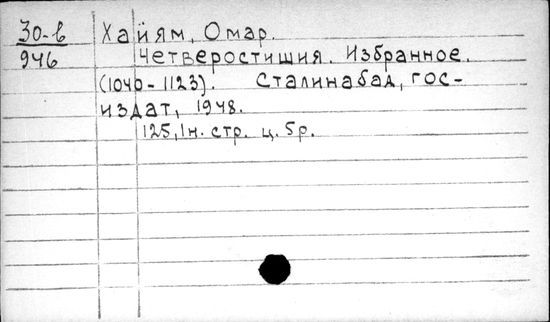 30-в
946
Хайям, Омар.
Четверостишия. Избранное.
(1040-1123). Сталинабад, гос-
издат, 1948.
125, 1н. стр. ц. 5р.